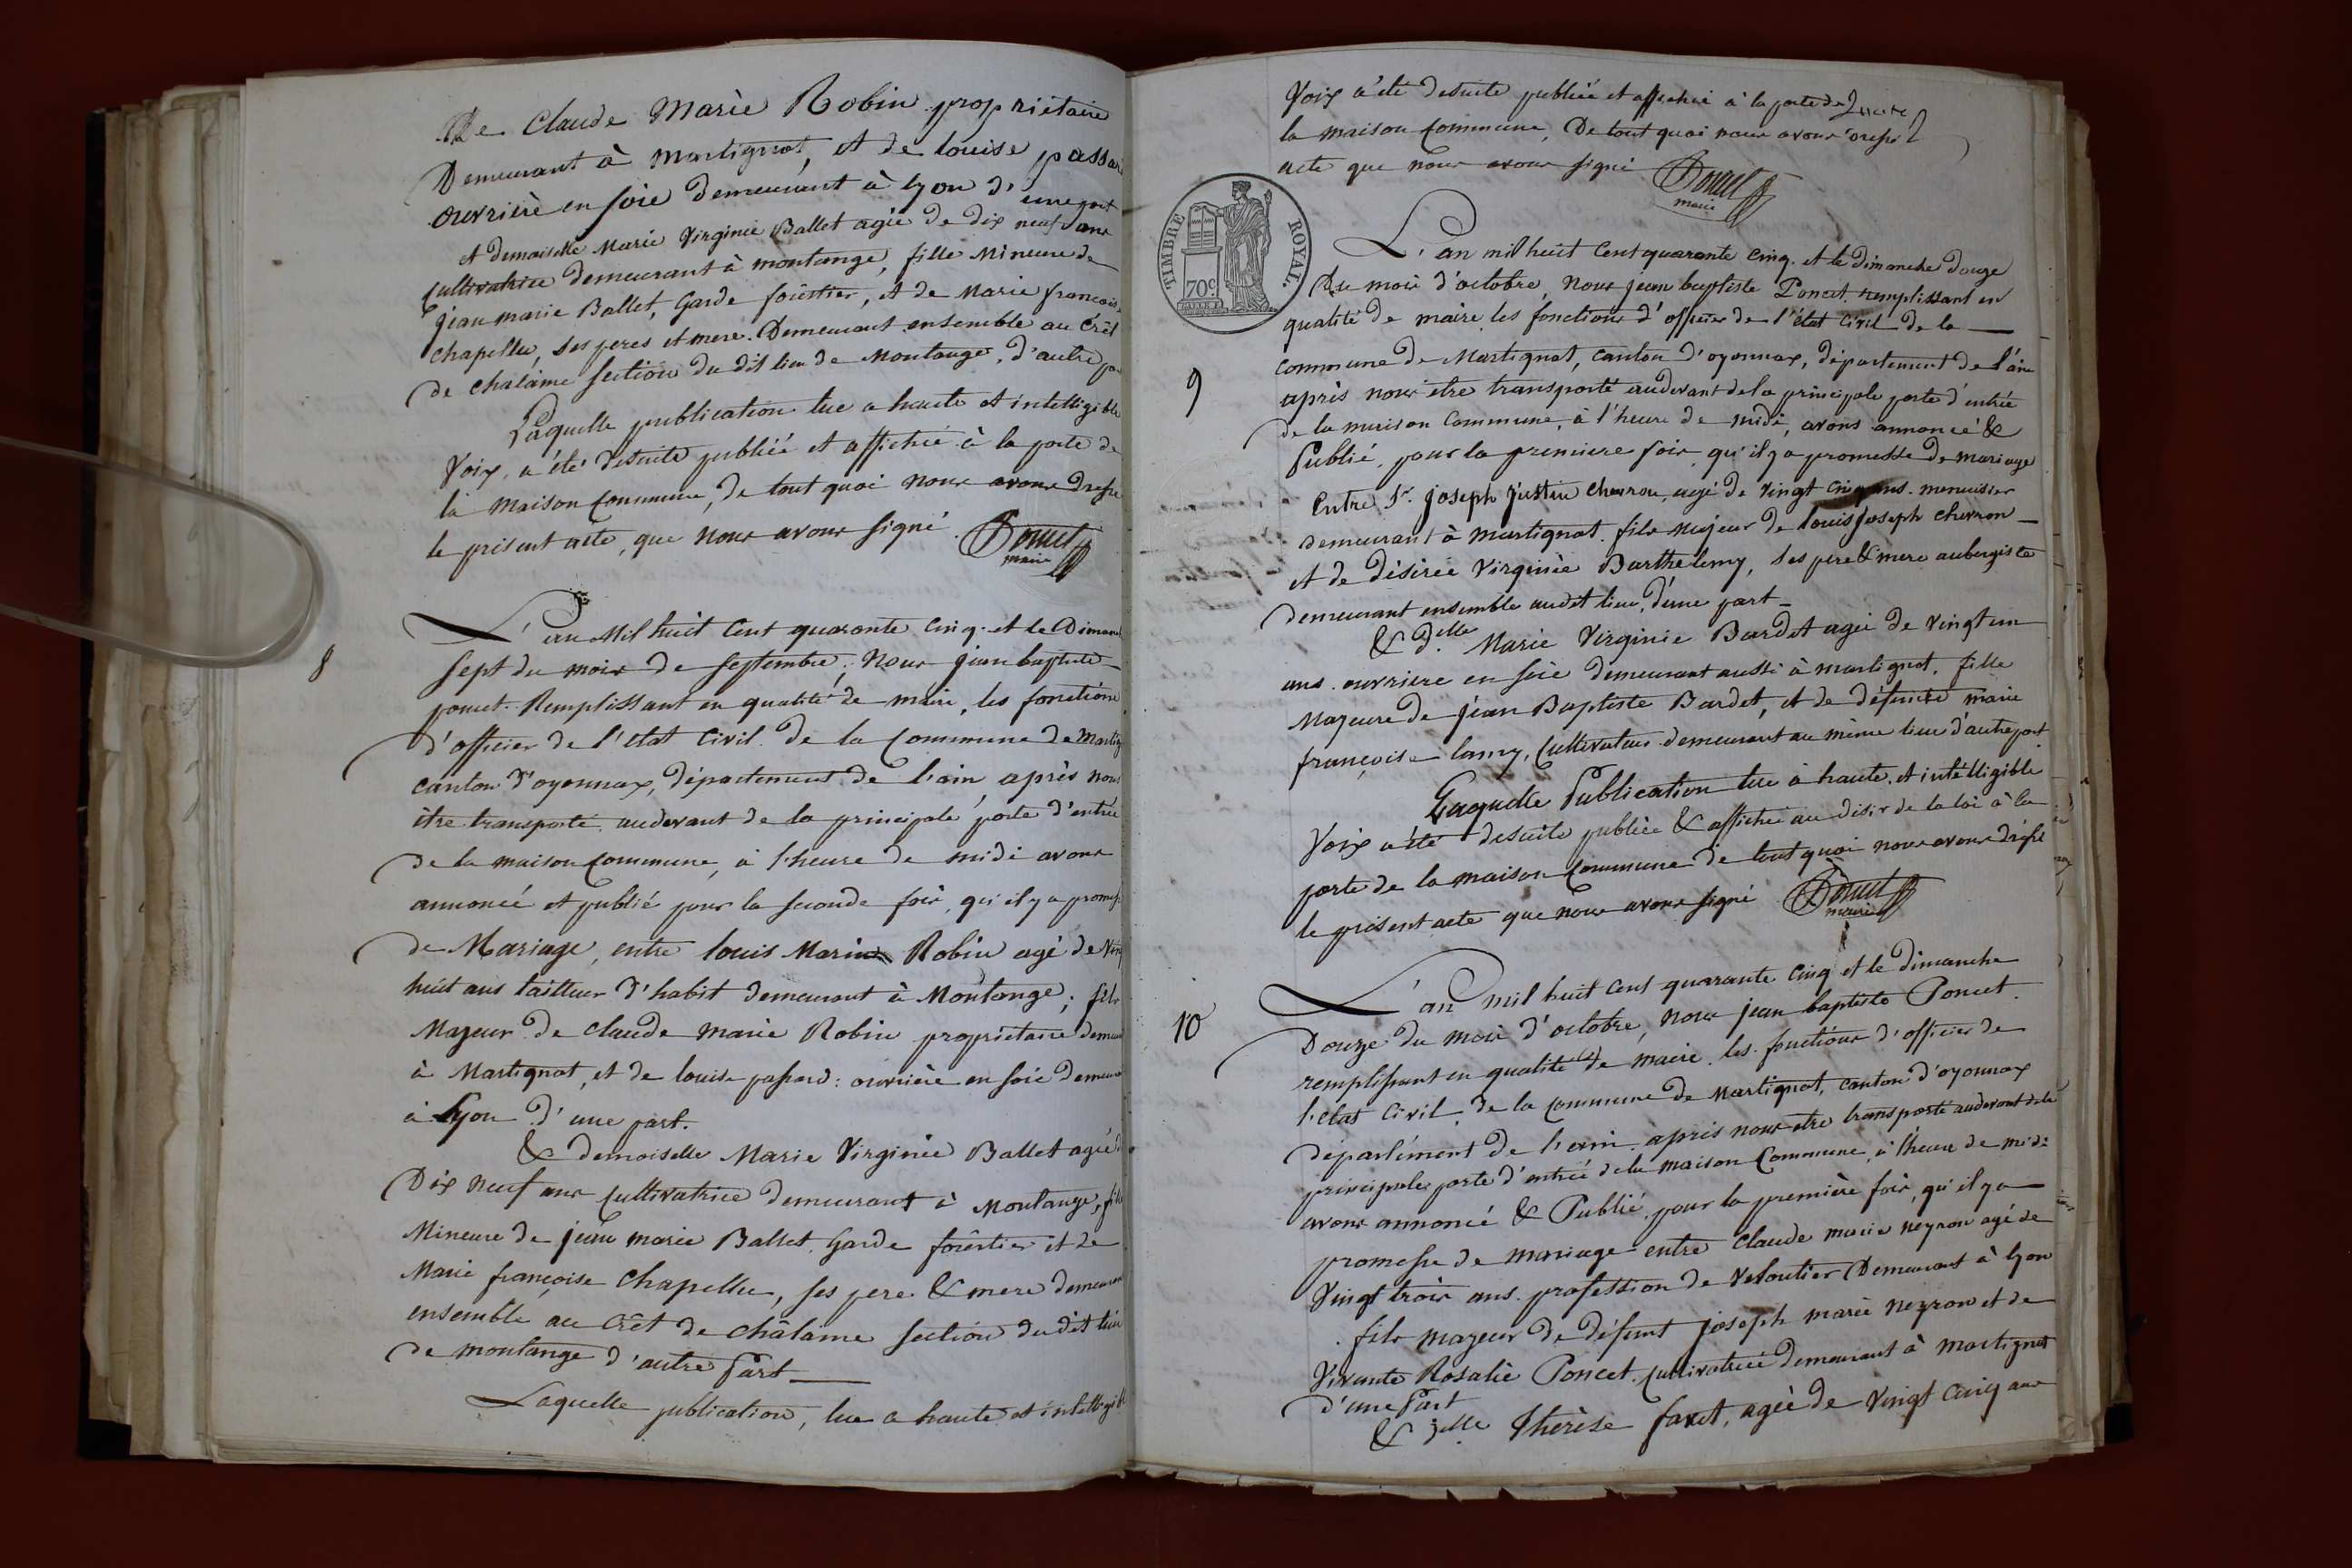 De Claude Marie Robin propriétaire
Demeurant à Martignat, et de louise passar
ouvrière en soie demeurant à lyon d'une part
et demoiselle Marie Virginie Ballet agée de dix neuf ans
Cultivatrice demeurant à montange, fille Mineure de
jean marie Ballet, Garde forestier, et de Marie françoise
Chapellu, ses peres et mere. Demeurant ensemble au Crêt
de chalàme section du dit lieu de Montange, d'autre pa
Laquelle publication lue a haute et intelligible
Voix, a été desuite publiée et affichée à la porte de
la Maison Commune, de tout quoi nous avons dressé
le présent acte, que nous avons signé Poncet
maire
8
L'an Mil huit Cent quarante cinq. et le Diman
sept du mois de septembre; Nous jean baptiste
poncet. Remplissant en qualité de maire, les fonctions
d'officier de l'état Civil. de la Commune de Martig
canton d'oyonnax, département de l'ain, après nous
être transporté audevant de la principale porte d'entrée
de la maison Commune, à l'heure de midi avons
annoncé et publié pour la seconde fois, qu'il y a promess
de Mariage, entre louis Marie Robin agé de Ving
huit ans tailleur d'habit demeurant à Montange; fils
Majeur de Claude marie Robin propriétaire demeu
à Martignat, et de louise passard: ouvrière en soie demeura
à Lyon d'une part.
& demoiselle Marie Virginie Ballet agée d
Dix neuf ans Cultivatrice demeurant à Montange, fille
Mineure de jean marie Ballet Garde forêstier et de
Marie françoise Chapellu, ses pere & mere demeurant
ensemble au Crêt de châlame section du dit lieu
de montange d'autre Part
Laquelle publication, lue a haute et intelligibl
Voix a été desuite publiée et affichée à la porte de
la maison Commune, De tout quoi nous avons dressé
acte que nous avons signé Poncet
maire
TIMBRE ROYAL.
70c
L'an mil huit Cent quarante cinq. et le dimanche douze
Du mois d'octobre, Nous jean baptiste Poncet, remplissant en
qualité de maire les fonctions d'officier de l'état Civil de la
9
commune de Martignat, canton d'oyonnax, département de l'ain
après nous être transporté audevant de la principale porte d'entrée
de la maison Commune, à l'heure de midi, avons annoncé &
Publié, pour la premiere fois, qu'il y a promesse de mariage
Entre Sr. joseph justin chevron, agé de vingt cinq ans. menuisier
demeurant à martignat. fils majeur de louis joseph chevron
et de désirée Virginie Barthelemy, ses pere & mere aubergiste
demeurant ensemble audit lieu, d'une part
& d.elle Marie Virginie Bardet agée de Vingt un
ans. ouvriere en soie demeurant aussi à martignat, fille
Majeure de jean Baptiste Bardet, et de défunte marie
françoise lamy, Cultivateur demeurant au même lieu d'autre part
Laquelle Publication lue à haute et intélligible
Voix a été desuite publiée & affichée au désir de la loi à la
porte de la maison Commune de tout quoi nous avons dréssé
le présent acte que nous avons signé Poncet
maire
10
L'an mil huit cent quarante cinq et le dimanche
Douze du mois d'octobre, nous jean baptiste Poncet.
remplissant en qualité de maire. les fonctions d'officier de
l'état Civil, de la commune de Martignat, canton d'oyonnax
département de l'ain. après nous être transporté audevant de la
principale porte d'entrée de la maison Commune, à l'heure de midi
avons annoncé & Publié pour la première fois, qu'il y a
promesse de mariage entre Claude marie neyron agé de
Vingt trois ans. profession de Veloutier Demeurant à lyon
fils majeur de défunt joseph marie neyron et de
Vivante Rosalie Poncet. Cultivatrice demeurant à martignat
d'une Part
& delle Thérèse favet, agée de Vingt cinq ans